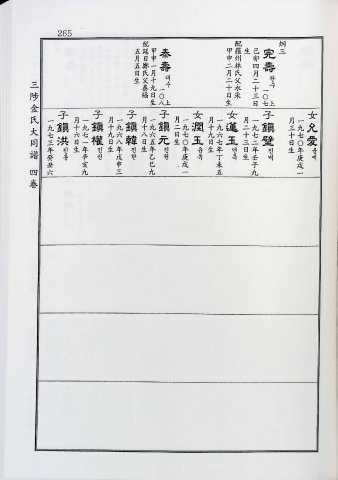 265
三陟金氏大同譜 四卷
炯三
完壽 완수
上一〇七
己卯四月二十三日
生
配羅州林氏父永采
甲申二月二十日生
泰壽 태수
上一〇八
甲申一月十九日生
配延日鄭氏父泰福
五月五日生
女 允愛 윤애
一九七〇年庚戌一
月三十日生
子 鎭璧 진벽
一九七二年壬子九
月二十三日生
女 蓮玉 연옥
一九六七年丁未五
月十九日生
女 潤玉 윤옥
一九七〇年庚戌一
月二日生
子 鎭元 진원
一九六五年乙巳九
月十八日生
子 鎭韓 진한
一九六八年戊申三
月十九日生
子 鎭權 진권
一九七一年辛亥九
月十九日生
子 鎭洪 진홍
一九七三年癸丑六